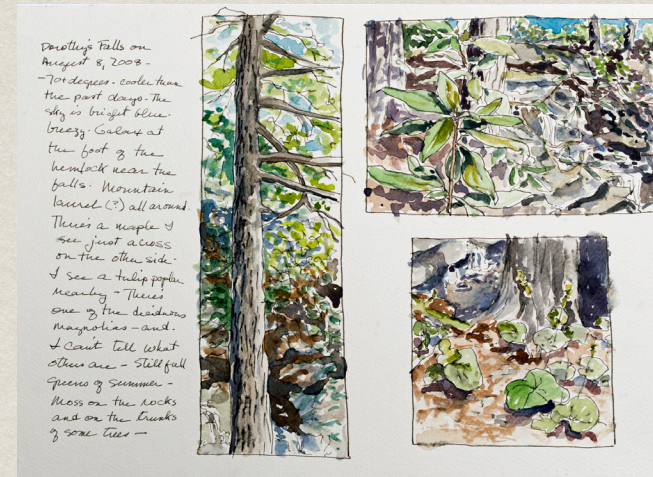 Dorothy's Falls on
August 8, 2008 -
- 70+ degrees - cooler than
the past days. The
sky is bright blue.
breezy. Galax at
the foot of the
hemlock near the
falls. Mountain
laurel (?) all around.
There's a maple I
see just across
on the other side.
I see a tulip poplar
nearby - There's
one of the deciduous
magnolias - and.
I can't tell what
others are - Still full
greens of summer -
Moss on the rocks
and on the trunks
of some trees -